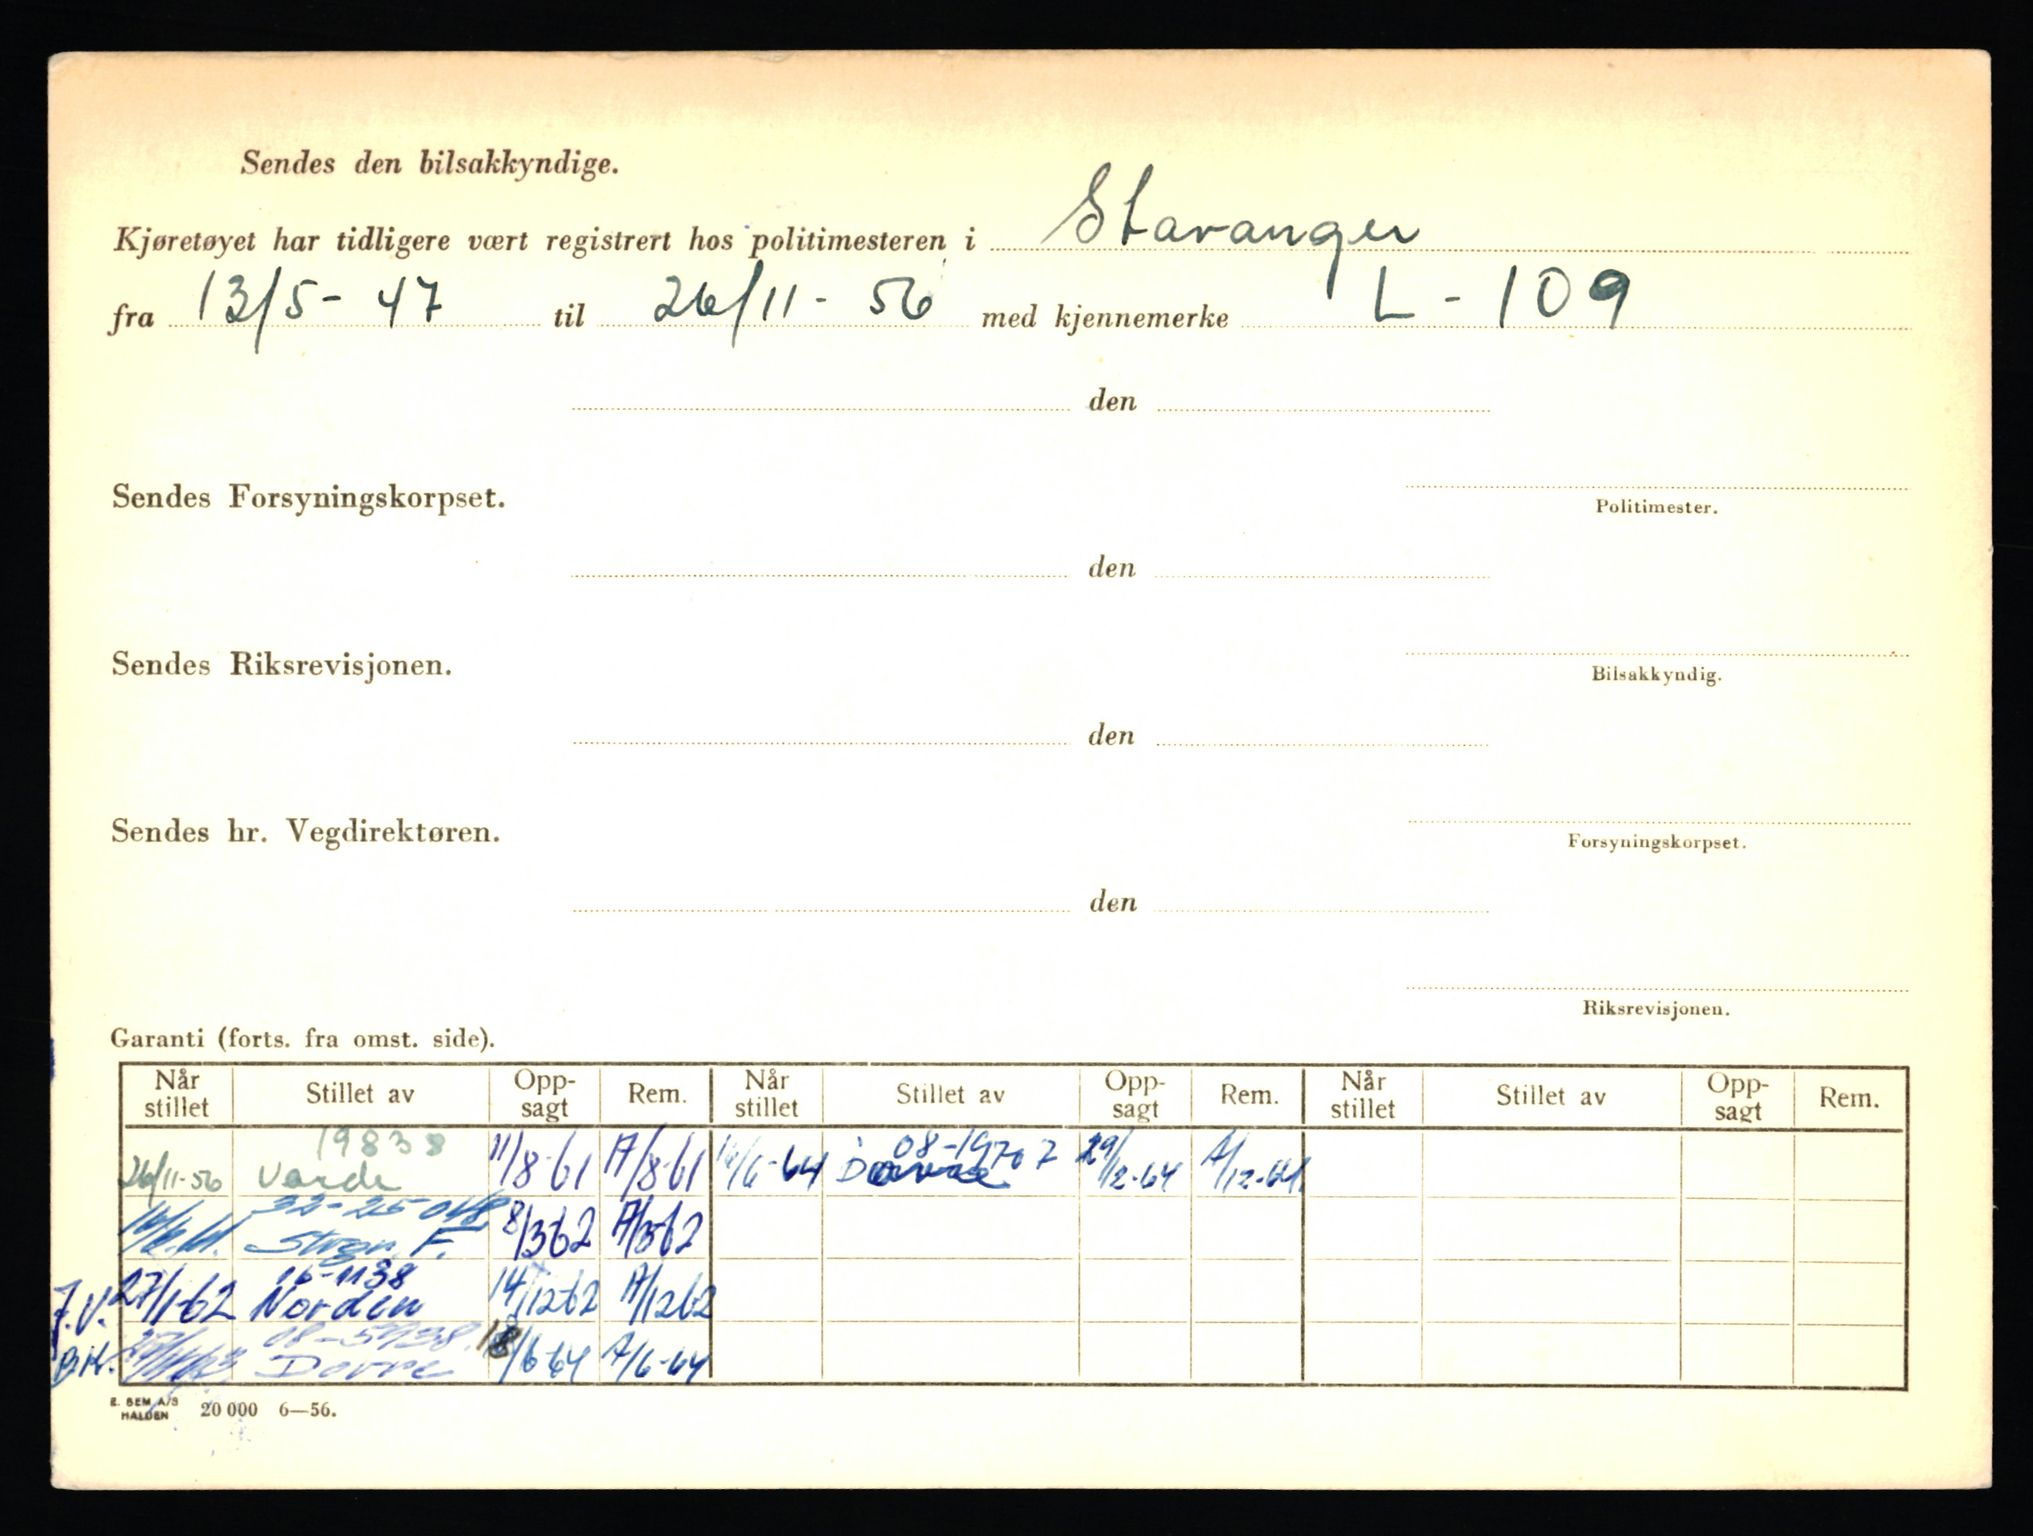 Sendes den bilsakkyndige.
Kjøretøyet har tidligere vært registrert hos politimesteren i Stavanger
fra 13/5- 47 til 26/11- 56 med kjennemerke L - 109
den
Sendes Forsyningskorpset.
Politimester.
den
Sendes Riksrevisjonen.
Bilsakkyndig.
den
Sendes hr. Vegdirektøren.
Forsyningskorpset.
den
Riksrevisjonen.
Garanti (forts. fra omst. side).
Når stillet Stillet av Opp-sagt Rem. Når stillet Stillet av Opp-sagt Rem. Når stillet Stillet av Opp-sagt Rem.
19838 08-19707
26/11-56 Varde 11/8-61 A/8-61 /6-64 Dovre 29/12-64 A/12-64
32-25048
Stvgr. F. 8/3 62 A/3 62
16-1138
J.V. 27/1-62 Norden 14/12 62 A/12 62
Dovre 18/6-64 A/6-64
E. SEM A/S
HALDEN 20 000 6—56.